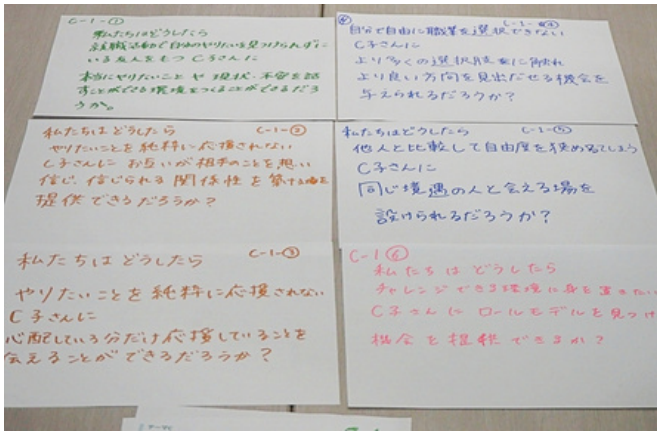 C-1-①
私たちはどうしたら
就職活動で自分のやりたいを見つけられずに
いる友人をもつ C子さんに
本当にやりたいことや 現状・不安を話
すことができる環境をつくることができるだろ
うか。
C-1-②
私たちはどうしたら
やりたいことを純粋に応援されない
C子さんに お互いが相手のことを想い
信じ、信じられる関係性を築ける場を
提供できるだろうか?
C-1-③
私たちはどうしたら
やりたいことを純粋に応援されない
C子さんに
心配している分だけ応援していることを
伝えることができるだろうか?
C-1-④
自分で自由に職業を選択できない
C子さんに
より多くの選択肢に触れ
より良い方向を見出だせる機会を
与えられるだろうか?
C-1-⑤
私たちはどうしたら
他人と比較して自由度を狭めてしまう
C子さんに
同じ境遇の人と会える場を
設けられるだろうか?
C-1⑥
私たちは どうしたら
チャレンジできる環境に身を置きたい
C子さんに ロールモデルを見つけ
機会を提供できるか?